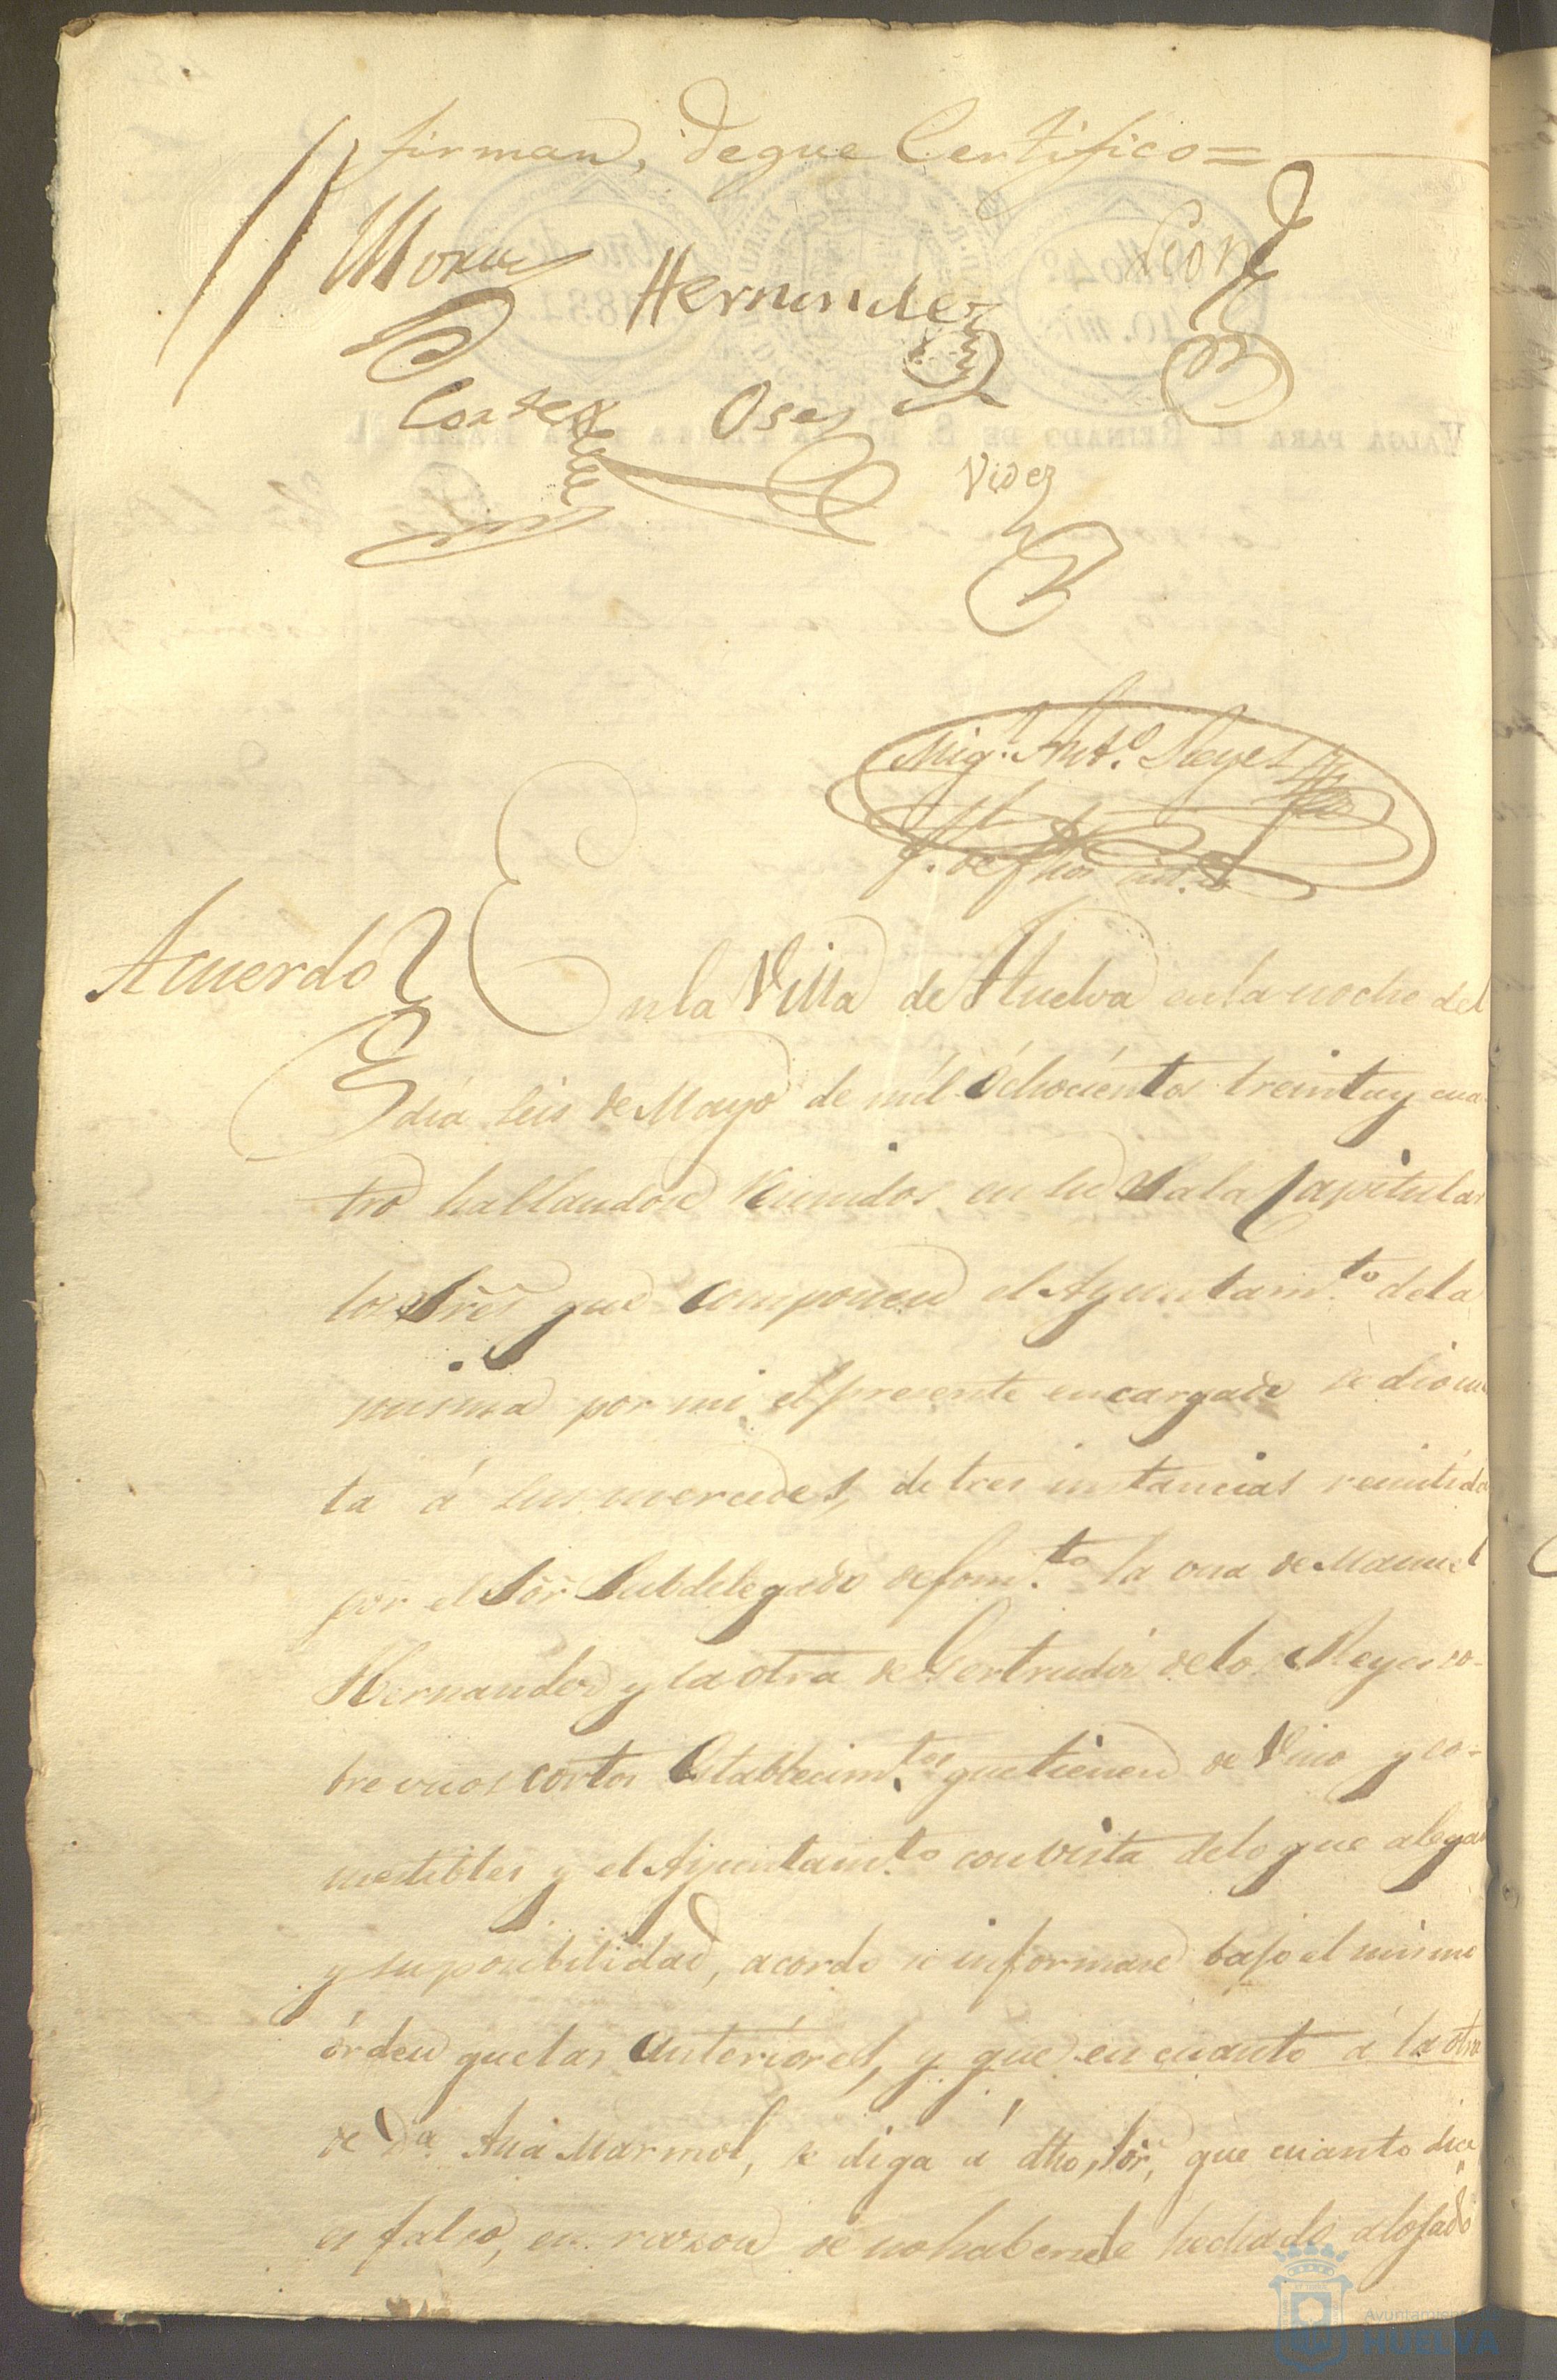 firman, deque Certifico=
Mora Hernandez Leon
Cortes Oses
Videz
Mig.l Ant.o Reyes
Acuerdo
En la Villa de Huelva en la noche del
dia seis de Mayo de mil ochocientos treinta y cua
tro hallandose reunidos en su Sala Capitular
los Sres que componen el Ayuntam.to de la
misma por mi el presente encargado se dio cuen
ta á sus mercedes, de tres instancias remitidas
por el Sor Subdelegado de fom.to la una de Manuel
Hernandez y la otra de Gertrudis de los Reyes so-
bre unos cortos Establecim.tos que tienen de Vino y co-
mestibles y el Ayuntam.to con vista de lo que alegan
y su posibilidad, acordo se informase bajo el mismo
órden que las anteriores, y que en cuanto á la otra
de Da Ana Marmol, se diga á dho, Sor, que cuanto dice
es falso, en razon de no haberele hechado alojado
VALGA PARA EL REINADO DE S. M. LA
Ayuntamiento
HUELVA